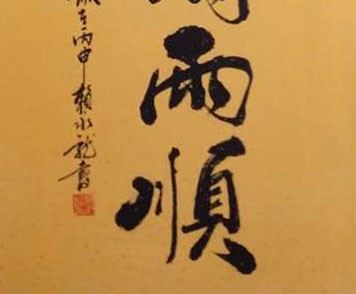 雨順
歲在丙申賴水龍書